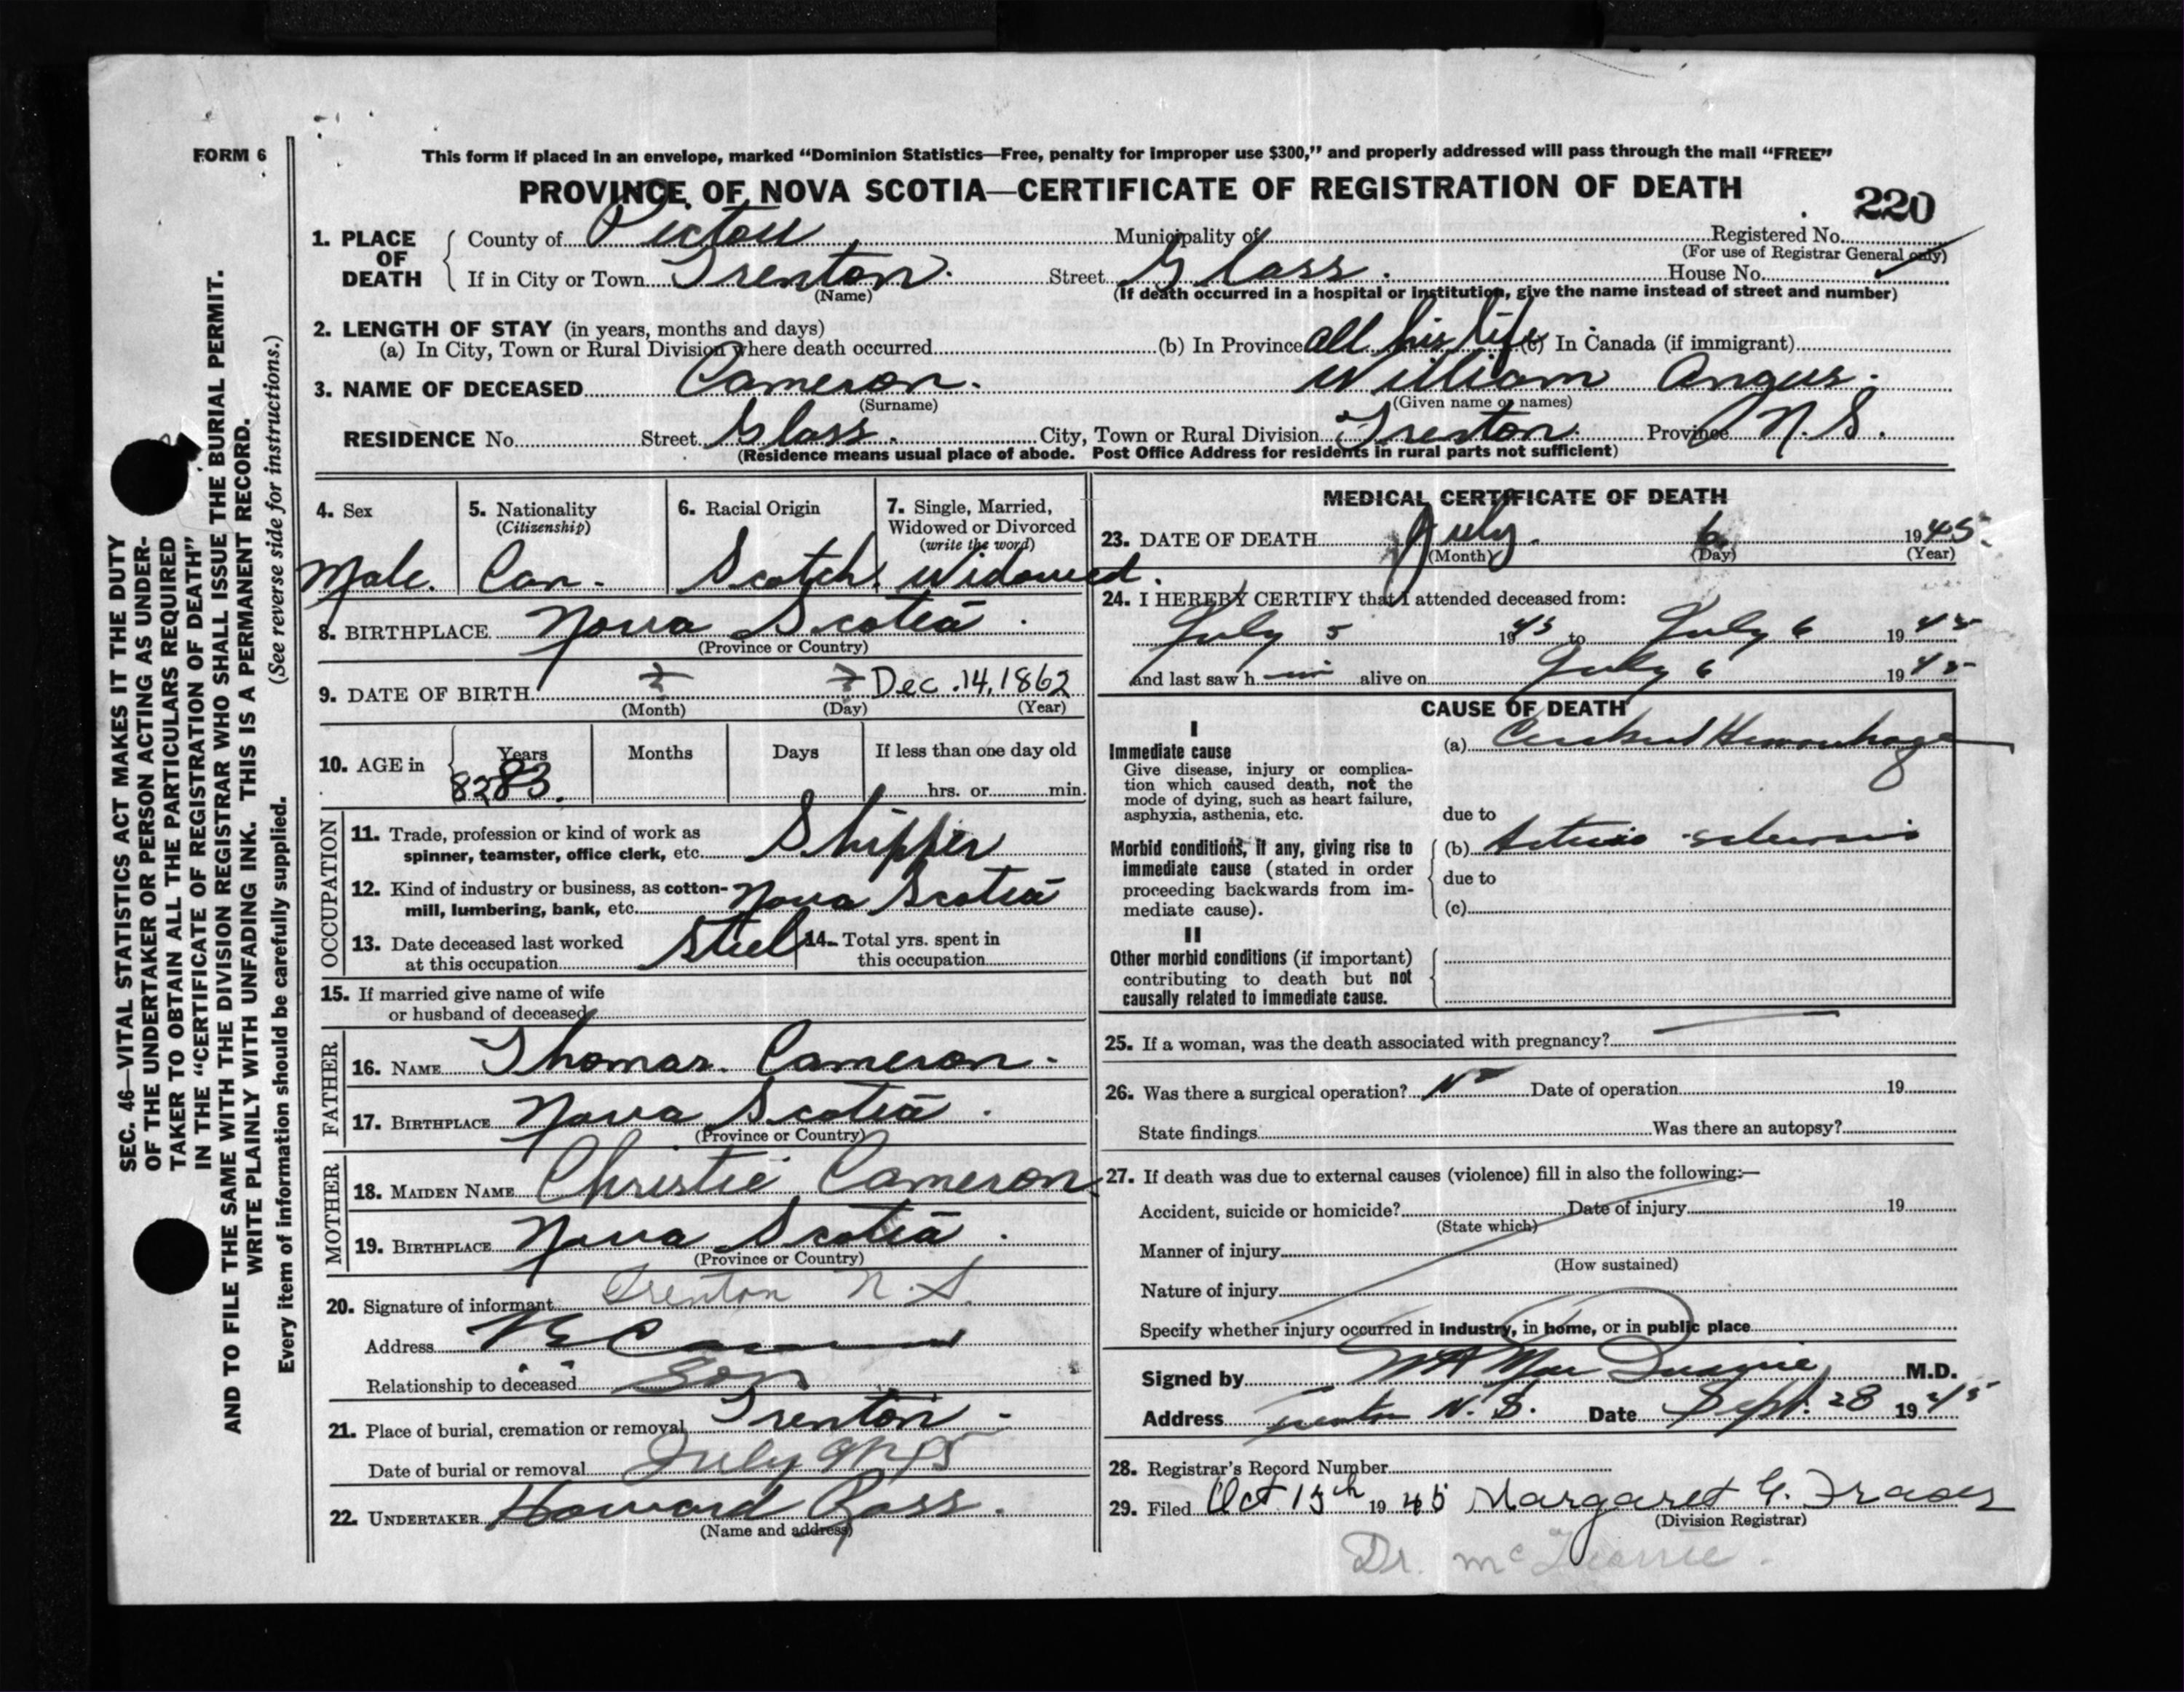 FORM 6
This form if placed in an envelope, marked “Dominion Statistics—Free, penalty for improper use $300,” and properly addressed will pass through the mail “FREE”
PROVINCE OF NOVA SCOTIA—CERTIFICATE OF REGISTRATION OF DEATH
220
1. PLACE OF DEATH
County of Pictou Municipality of Registered No.
(For use of Registrar General only)
If in City or Town Trenton. Street Glass. House No.
(Name) (If death occurred in a hospital or institution, give the name instead of street and number)
2. LENGTH OF STAY (in years, months and days)
(a) In City, Town or Rural Division where death occurred (b) In Province all his life (c) In Canada (if immigrant)
3. NAME OF DECEASED Cameron. William Angus.
(Surname) (Given name or names)
RESIDENCE No. Street Glass. City, Town or Rural Division Trenton. Province N.S.
(Residence means usual place of abode. Post Office Address for residents in rural parts not sufficient)
4. Sex
Male.
5. Nationality
(Citizenship)
Can.
6. Racial Origin
Scotch
7. Single, Married,
Widowed or Divorced
(write the word)
Widowed.
8. BIRTHPLACE Nova Scotia.
(Province or Country)
9. DATE OF BIRTH ? ? Dec. 14, 1862
(Month) (Day) (Year)
10. AGE in
Years Months Days If less than one day old
82 83. hrs. or min.
OCCUPATION
11. Trade, profession or kind of work as
spinner, teamster, office clerk, etc. Shipper
12. Kind of industry or business, as cotton-
mill, lumbering, bank, etc. Nova Scotia
13. Date deceased last worked
at this occupation Steel
14. Total yrs. spent in
this occupation
15. If married give name of wife
or husband of deceased
FATHER
16. NAME Thomas. Cameron.
17. BIRTHPLACE Nova Scotia.
(Province or Country)
MOTHER
18. MAIDEN NAME Christie Cameron
19. BIRTHPLACE Nova Scotia.
(Province or Country)
20. Signature of informant Trenton N.S.
Address
Relationship to deceased Son
21. Place of burial, cremation or removal Trenton.
Date of burial or removal July 9th 45
22. UNDERTAKER Howard Ross.
(Name and address)
MEDICAL CERTIFICATE OF DEATH
23. DATE OF DEATH July. 6 1945.
(Month) (Day) (Year)
24. I HEREBY CERTIFY that I attended deceased from:
July 5 1945 to July 6 1945
and last saw h im alive on July 6 1945
CAUSE OF DEATH
I
Immediate cause
Give disease, injury or complica-
tion which caused death, not the
mode of dying, such as heart failure,
asphyxia, asthenia, etc.
(a) Cerebral Hemorrhage
due to
Morbid conditions, if any, giving rise to
immediate cause (stated in order
proceeding backwards from im-
mediate cause).
(b) Arterio-sclerosis
due to
(c)
II
Other morbid conditions (if important)
contributing to death but not
causally related to immediate cause.
25. If a woman, was the death associated with pregnancy?
26. Was there a surgical operation? No Date of operation 19
State findings Was there an autopsy?
27. If death was due to external causes (violence) fill in also the following:—
Accident, suicide or homicide? Date of injury 19
(State which)
Manner of injury
(How sustained)
Nature of injury
Specify whether injury occurred in industry, in home, or in public place
Signed by M.D.
Address Trenton N.S. Date Sept. 28 1945
28. Registrar's Record Number
29. Filed Oct 15th 1945 Margaret G. Fraser
(Division Registrar)
Dr.
SEC. 46—VITAL STATISTICS ACT MAKES IT THE DUTY
OF THE UNDERTAKER OR PERSON ACTING AS UNDER-
TAKER TO OBTAIN ALL THE PARTICULARS REQUIRED
IN THE “CERTIFICATE OF REGISTRATION OF DEATH”
AND TO FILE THE SAME WITH THE DIVISION REGISTRAR WHO SHALL ISSUE THE BURIAL PERMIT.
WRITE PLAINLY WITH UNFADING INK. THIS IS A PERMANENT RECORD.
(See reverse side for instructions.)
Every item of information should be carefully supplied.